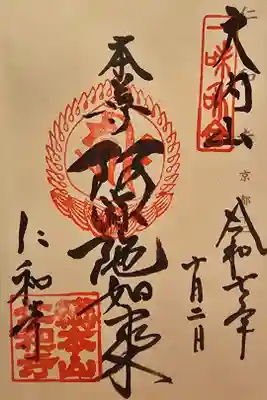 大内山
令和七年
十月二日
本尊 阿弥陀如来
仁和寺
総本山
仁和寺